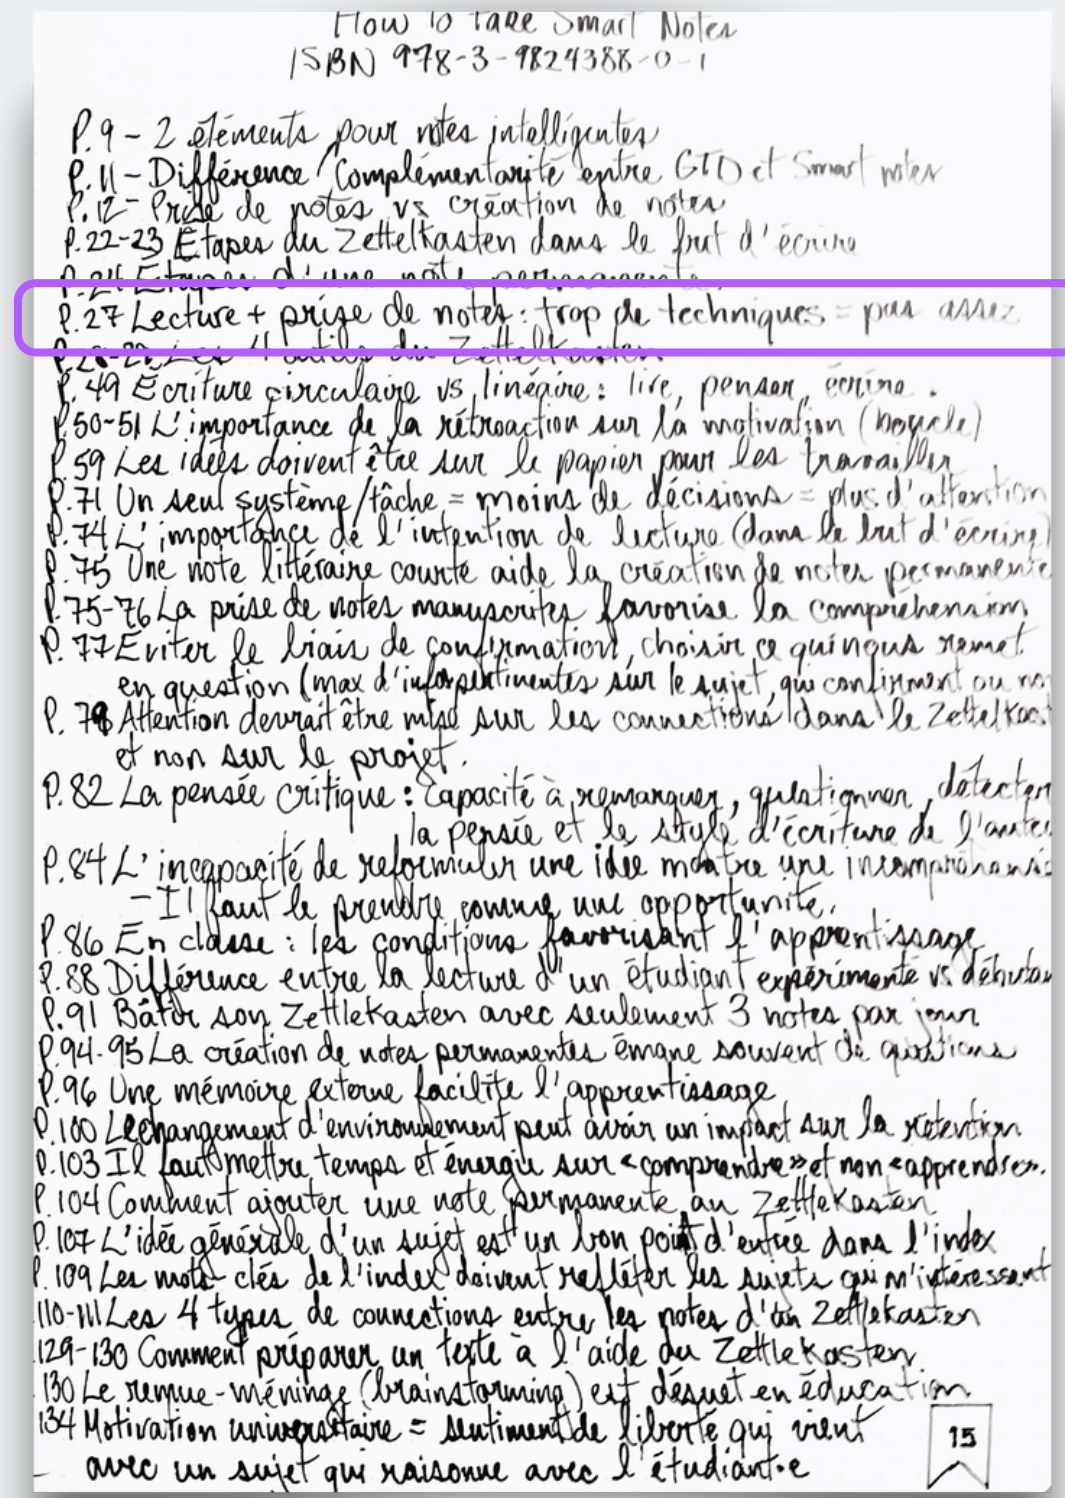 How to Take Smart Notes
ISBN 978-3-9824388-0-1
P.9 - 2 éléments pour notes intelligentes
P.11 - Différence/Complémentarité entre GTD et Smart notes
P.12 - Prise de notes vs création de notes
P.22-23 Étapes du Zettelkasten dans le but d'écrire
P.24 Étapes d'une note permanente
P.27 Lecture + prise de notes : trop de techniques = pas assez
Les 4 outils du Zettelkasten
P.49 Écriture circulaire vs linéaire : lire, penser, écrire.
P.50-51 L'importance de la rétroaction sur la motivation (boucle)
P.59 Les idées doivent être sur le papier pour les travailler
P.71 Un seul système/tâche = moins de décisions = plus d'attention
P.74 L'importance de l'intention de lecture (dans le but d'écrire)
P.75 Une note littéraire courte aide la création de notes permanente
P.75-76 La prise de notes manuscrites favorise la compréhension
P.77 Éviter le biais de confirmation, choisir ce qui nous remet
en question (max d'infos pertinentes sur le sujet, qui confirment ou no
P.78 Attention devrait être mise sur les connections dans le Zettelkast
et non sur le projet.
P.82 La pensée critique : Capacité à remarquer, questionner, détecter
la pensée et le style d'écriture de l'auteu
P.84 L'incapacité de reformuler une idée montre une incompréhensi
- Il faut le prendre comme une opportunité.
P.86 En classe : les conditions favorisant l'apprentissage
P.88 Différence entre la lecture d'un étudiant expérimenté vs débutan
P.91 Bâtir son Zettlekasten avec seulement 3 notes par jour
P.94-95 La création de notes permanentes émane souvent de questions
P.96 Une mémoire externe facilite l'apprentissage
P.100 Le changement d'environnement peut avoir un impact sur la rétention
P.103 Il faut mettre temps et énergie sur «comprendre» et non «apprendre».
P.104 Comment ajouter une note permanente au Zettlekasten
P.107 L'idée générale d'un sujet est un bon point d'entrée dans l'index
P.109 Les mots-clés de l'index doivent refléter les sujets qui m'intéressent
110-111 Les 4 types de connections entre les notes d'un Zettlekasten
129-130 Comment préparer un texte à l'aide du Zettlekasten
130 Le remue-méninge (brainstorming) est désuet en éducation
134 Motivation universitaire = sentiment de liberté qui vient
avec un sujet qui raisonne avec l'étudiant·e
15